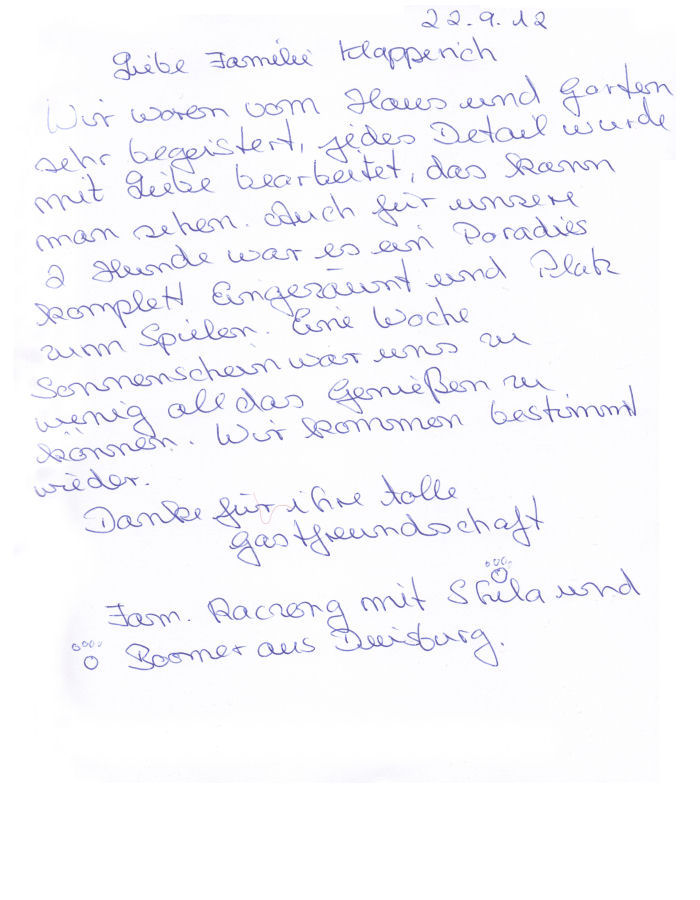 22.9.12
Liebe Familie Klapperich
Wir waren vom Haus und Garten
sehr begeistert, jedes Detail wurde
mit Liebe bearbeitet, das kann
man sehen. Auch für unsere
2 Hunde war es ein Paradies
komplett Eingezäunt und Platz
zum Spielen. Eine Woche
Sonnenschein war uns zu
wenig all das Genießen zu
können. Wir kommen bestimmt
wieder.
Danke für ihre tolle
Gastfreundschaft
Fam. mit und
Boomer aus Duisburg.